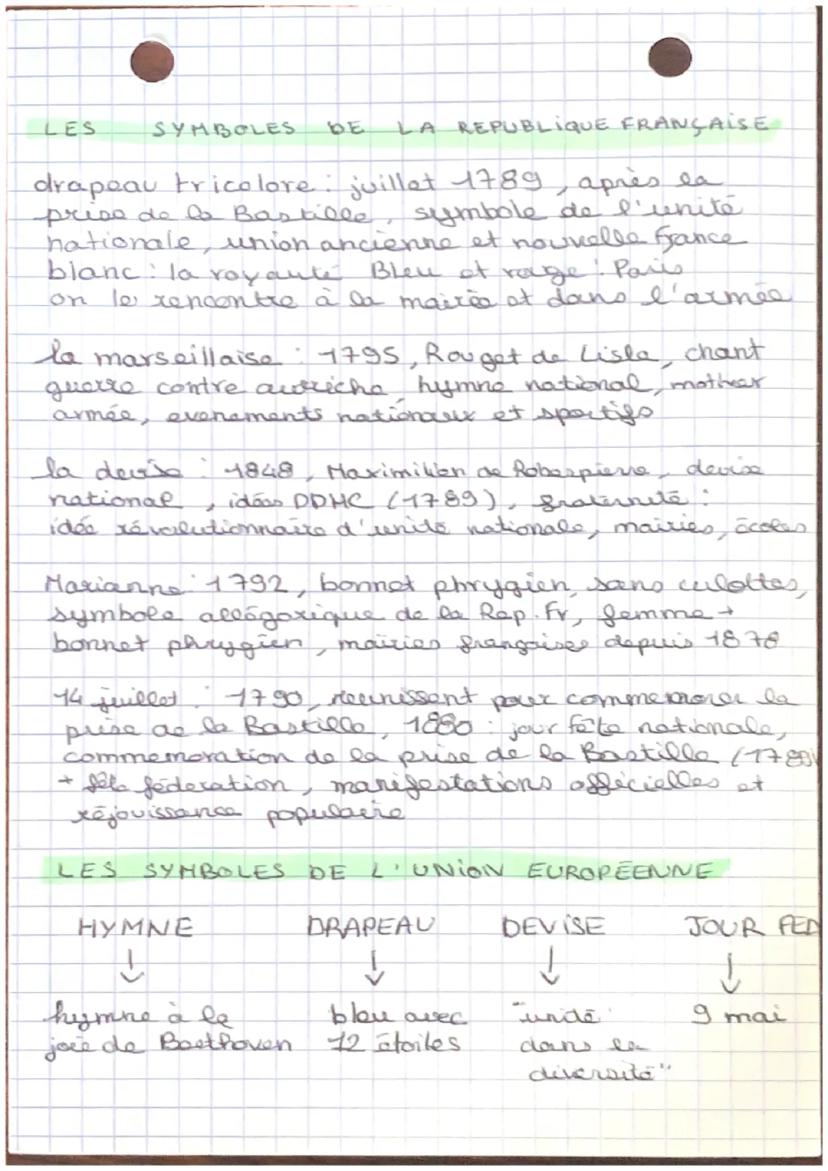 LES SYMBOLES DE LA REPUBLIQUE FRANÇAISE
drapeau tricolore : juillet 1789, après la
prise de la Bastille, symbole de l'unité
nationale, union ancienne et nouvelle france
blanc : la royauté Bleu et rouge : Paris
on le rencontre à la mairie et dans l'armée
la marseillaise : 1795, Rouget de Lisle, chant
guerre contre autriche, hymne national,
armée, evenements nationaux et sportifs
la devise : 1848, Maximilien de Roberspierre, devise
national, idées DDHC (1789), fraternité :
idée révolutionnaire d'unité nationale, mairies, écoles
Marianne : 1792, bonnet phrygien, sans culottes,
symbole allégorique de la Rép. Fr, femme +
bonnet phrygien, mairies françaises depuis 1878
14 juillet : 1790, reunissent pour commemorer la
prise de la Bastille, 1880 : jour fête nationale,
commemoration de la prise de la Bastille (1789)
+ fête fédération, manifestations officielles et
réjouissance populaire
LES SYMBOLES DE L'UNION EUROPÉENNE
HYMNE DRAPEAU DEVISE JOUR FED
↓ ↓ ↓ ↓
hymne à la bleu avec "unité 9 mai
joie de Beethoven 12 étoiles dans la
diversité"